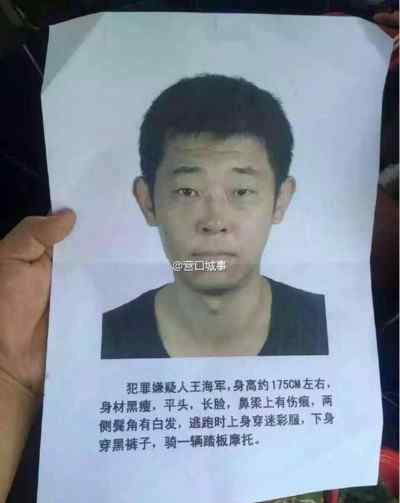 @营口城事
犯罪嫌疑人王海军，身高约175CM左右，
身材黑瘦，平头，长脸，鼻梁上有伤痕，两
侧鬓角有白发，逃跑时上身穿迷彩服，下身
穿黑裤子，骑一辆踏板摩托。